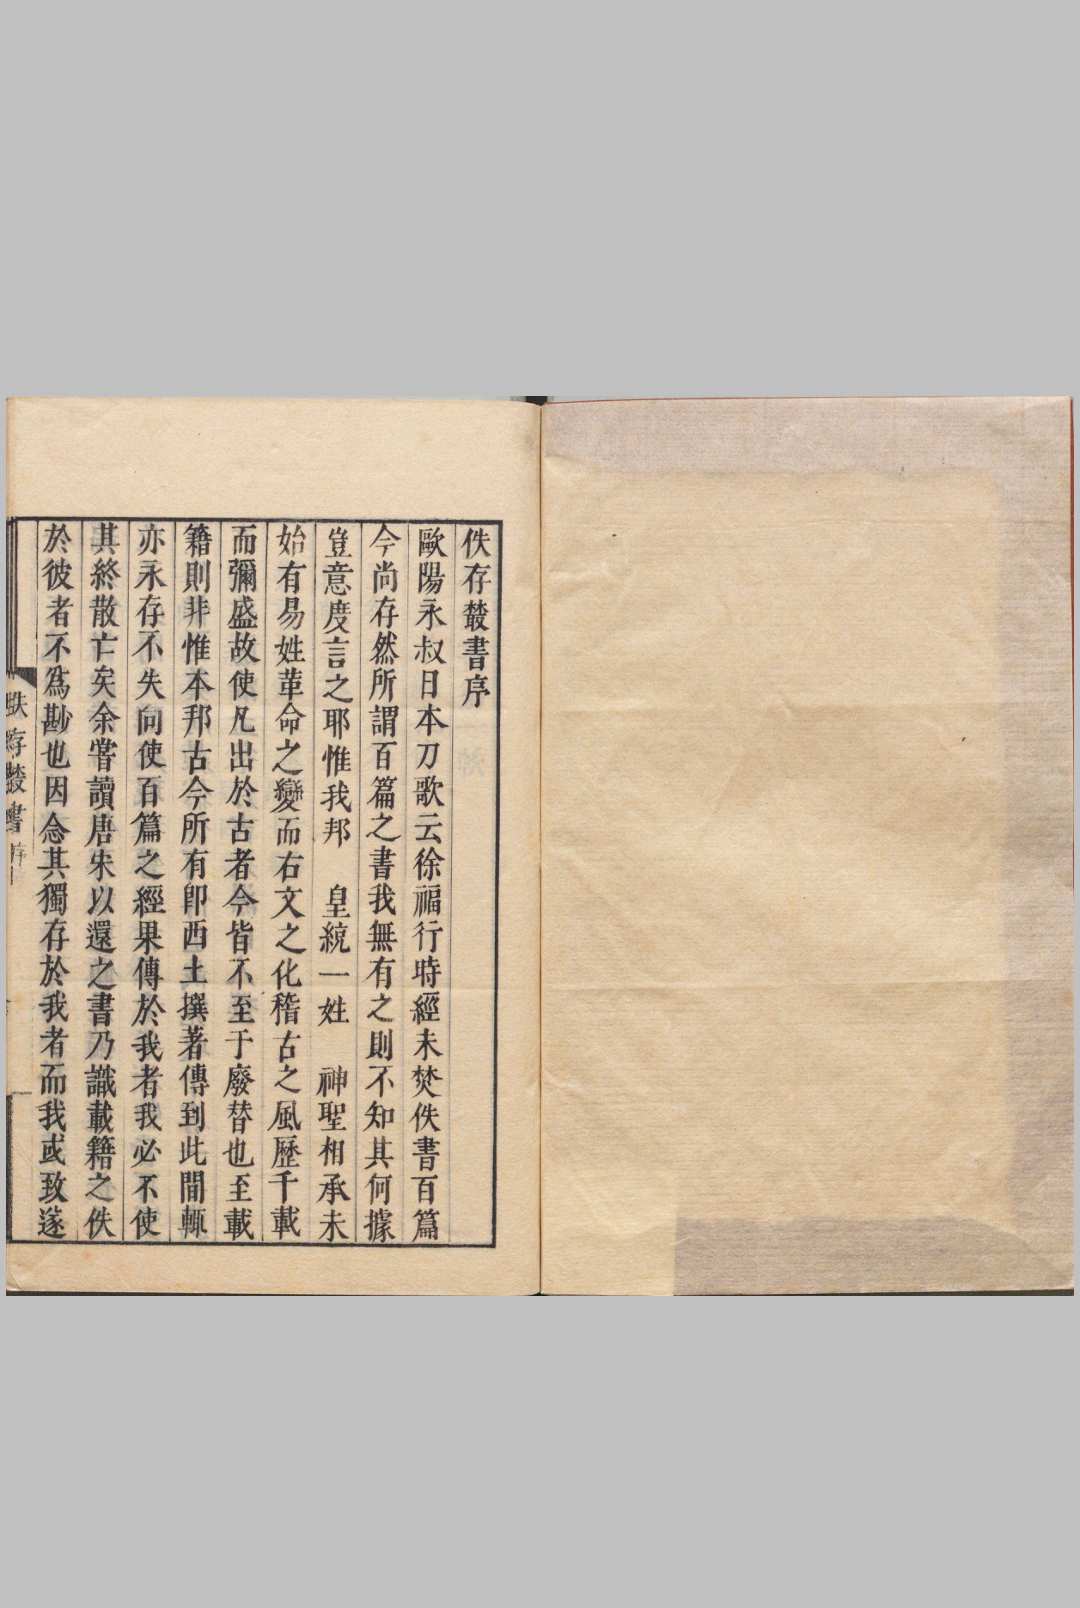 佚存叢書序
歐陽永叔日本刀歌云徐福行時經未焚佚書百篇
今尚存然所謂百篇之書我無有之則不知其何據
豈意度言之耶惟我邦　皇統一姓　神聖相承未
始有易姓革命之變而右文之化稽古之風歷千載
而彌盛故使凡出於古者今皆不至于廢替也至載
籍則非惟本邦古今所有即西土撰著傳到此間輒
亦永存不失向使百篇之經果傳於我者我必不使
其終散亡矣余嘗讀唐宋以還之書乃識載籍之佚
於彼者不爲尠也因念其獨存於我者而我或致遂
佚存叢書 序